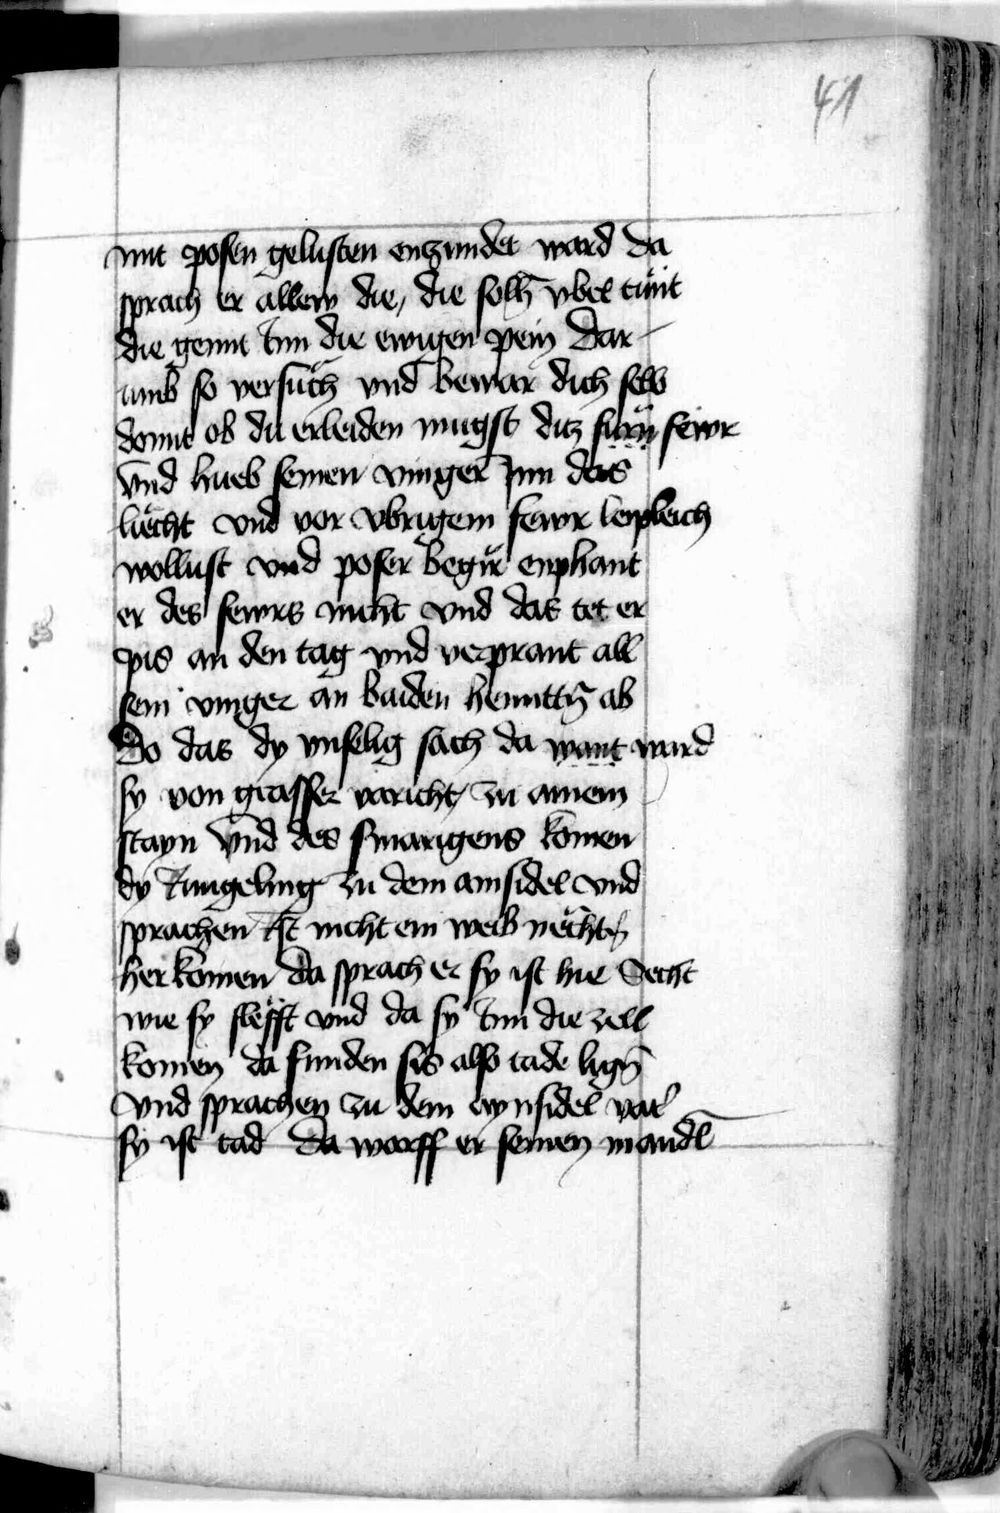 41
mit posen gelusten enzundet ward da
sprach er allew die, die solh̄ vbel tuͤnt
die gennt Inn die ewigen pein Dar-
umb so versuͤch vnd bewar dich selb
domit ob du erleiden mugst ditz fewr
Vnd hueb seinen vinger Inn das
liecht vnd vor vbrigem fewr leipleich
wollust vnd poser begir enphant
er des fewrs nicht vnd das tet er
pis an den tag vnd verprant all
sein vinger an baiden hennttn̄ ab
Do das dy vnselig sach da want ward
sy von grasser varicht, zu ainem
stayn Vnd des smarigens komen
dy Iungeling zu dem ainsidel vnd
sprachen Ist nicht ein weib nechtn̄
her komen da sprach er sy ist hie Secht
wie sy slefft vnd da sy Inn die zell
komen da funden sis also tade lign̄
Vnd sprachen zu dem aynsidel vat̄
sy ist tad Da warff er seinen mandl̄